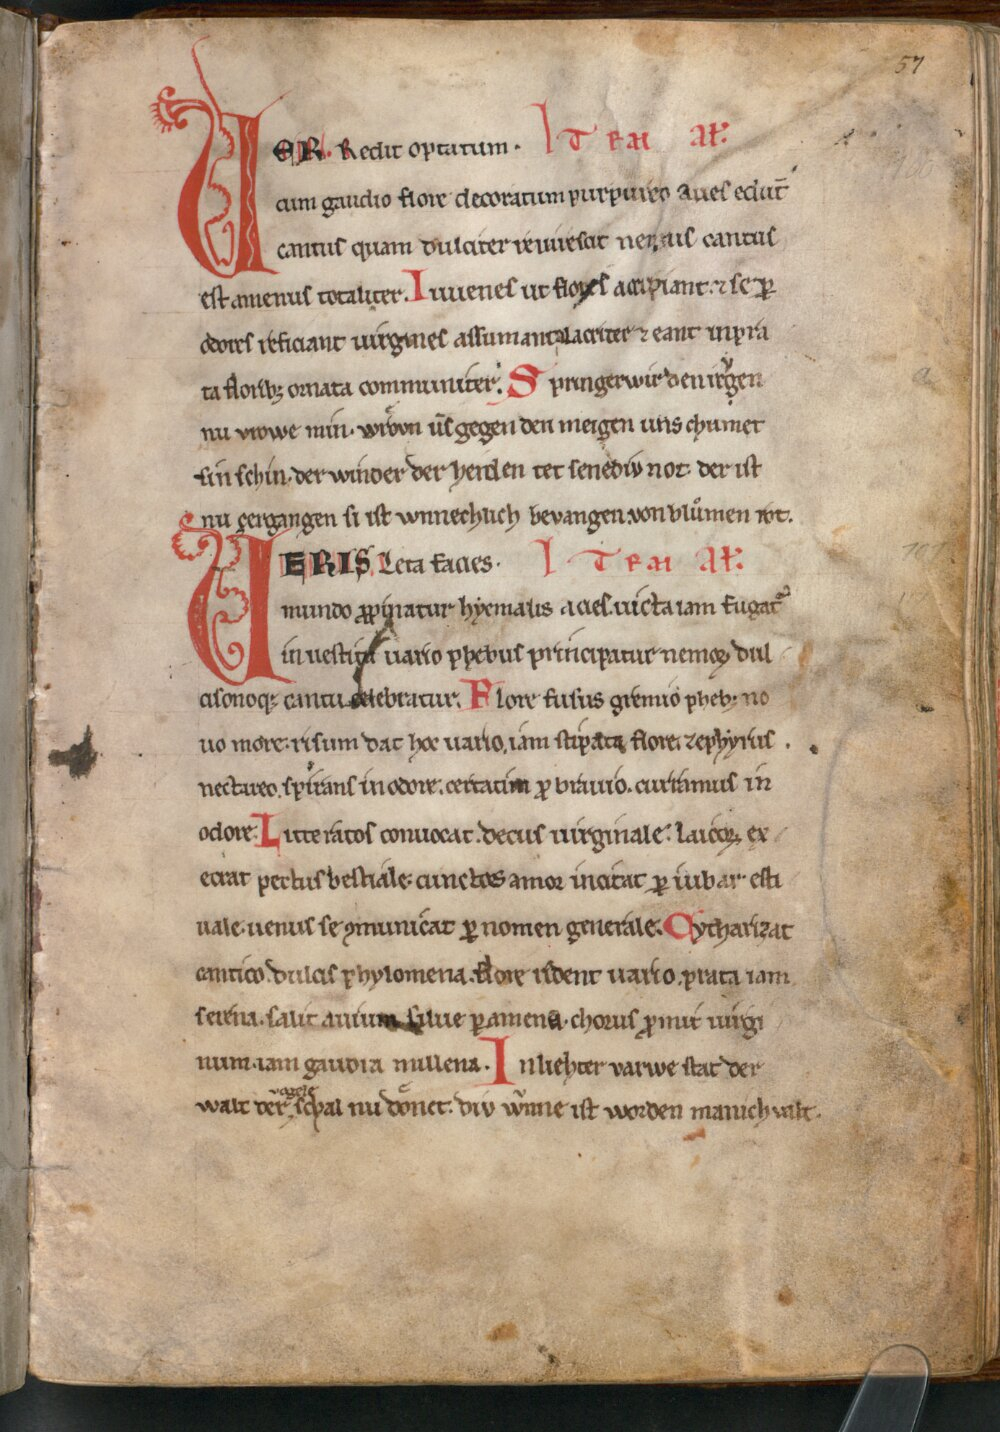 57
VER Redit optatum. ITEM AL'.
cum gaudio flore decoratum purpureo aues edūt
cantus quam dulciter reuirescit nemus cantus
est amenus totaliter. Iuuenes ut flores accipiant. ⁊ se ꝑ
odores reficiant uirgines assumant alacriter ⁊ eant in pra
ta floribꝫ ornata communiter. Springerwir den reigen
nu vrowe min. vrͦvn uͤs gegen den meigen uns chumet
sin schin. der winder der heiden tet senediv not. der ist
nu zergangen si ist wnnechlich bevangen von blůmen rot.
VERIS Leta facies. ITEM AL'.
mundo ꝓpinatur hyemalis acies. uicta iam fugat᷑
in uestitu uario phebus principatur nemoꝝ dul
cisonoqꝫ cantu celebratur. Flore fusus gremio phebꝰ no
uo more. risum dat hoc uario, iam stipata flore. zephyrus
nectareo, spirans in odore. certatim ꝓ brauio. curramus in
odore. Litteratos conuocat. decus uirginale. laicoꝝ ex
ecrat pectus bestiale. cunctos amor incitat ꝑ iubar esti
uale. uenus se ꝯmunicat ꝑ nomen generale. Cytharizat
cantico dulcis phylomena. flore rident uario. prata iam
serena. salit auium silue ꝑ amena. chorus ꝓmit uirgi
num. iam gaudia millena. In liehter varwe stat der
vogele
walt der schal nu doͤnet. div wͮnne ist worden manichvalt.